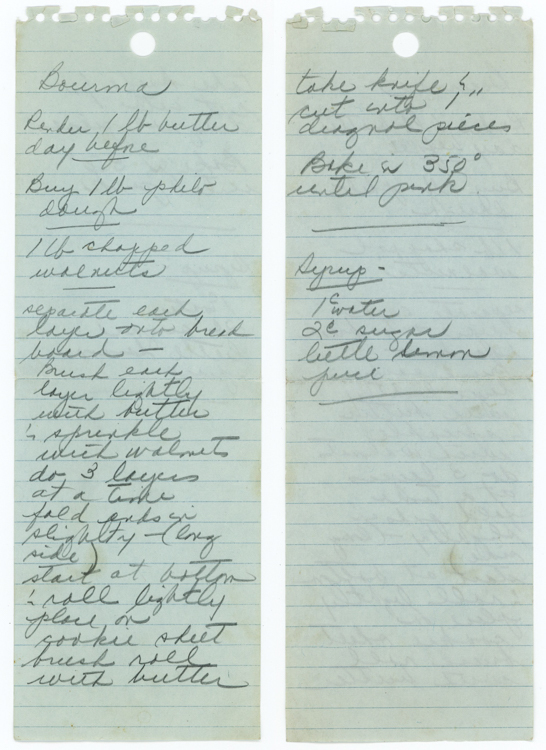 Bourma
Render 1 lb butter
day before
Buy 1 lb philo
dough
1 lb chopped
walnuts
separate each
layer onto bread
board -
Brush each
layer lightly
with butter
& sprinkle
with walnuts
do 3 layers
at a time
fold ends in
slightly - (long
side)
start at bottom
& roll lightly
place on
cookie sheet
brush roll
with butter
take knife &
cut into
diagnol pieces
Bake in 350°
until pink.
Syrup -
1 c water
2 c sugar
little lemon
juice